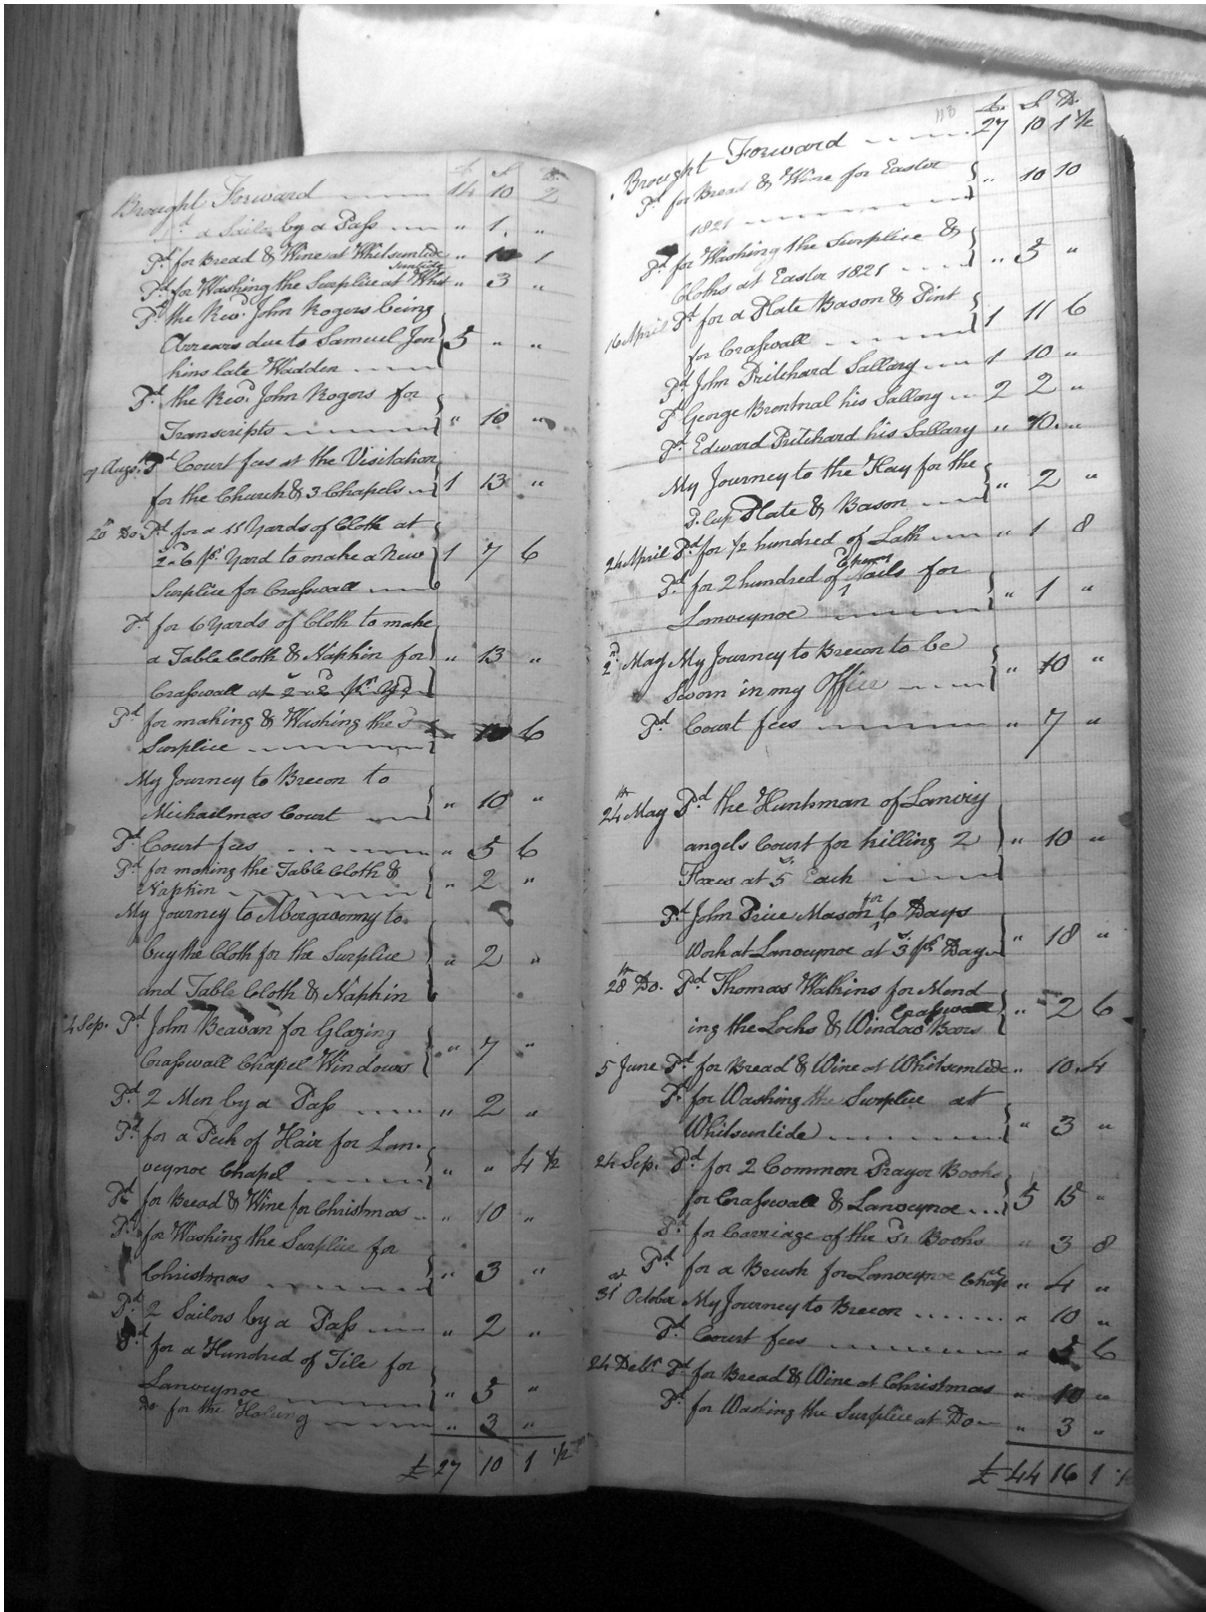 £ S D
Brought Forward 14 10 2
Pd a Sailor by a Pass " 1 "
Pd for Bread & Wine at Whitsuntide " 10 1
Pd for Washing the Surplice at Whitsuntide " 3 "
Pd the Revd John Rogers being
Arrears due to Samuel Jen 5 " "
kins late Wadden
Pd the Revd John Rogers for
Transcripts " 10 "
9 Augst Pd Court fees at the Visitation
for the Church & 3 Chapels 1 13 "
20th Do Pd for a 11 Yards of Cloth at
2s 6d pr Yard to make a New 1 7 6
Surplice for Crasswall
Pd for 6 Yards of Cloth to make
a Table Cloth & Napkin for " 13 "
Crasswall at 2s 2d pr Yd
Pd for making & Washing the Sd
Surplice 10 6
My Journey to Brecon to
Michailmas Court " 10 "
Pd Court fees " 5 6
Pd for making the Table Cloth &
Napkin " 2 "
My Journey to Abergavonny to
buy the Cloth for the Surplice " 2 "
and Table Cloth & Napkin
4 Sep. Pd John Beavan for Glazing
Crasswall Chapel Windows " 7 "
Pd 2 Men by a Pass " 2 "
Pd for a Peck of Hair for Lan-
veynoe Chapel " " 4 1/2
Pd for Bread & Wine for Christmas " 10 "
Pd for Washing the Surplice for
Christmas " 3 "
Pd 2 Sailors by a Pass " 2 "
Pd for a Hundred of Tile for
Lanveynoe " 5 "
Do for the Haling " 3 "
£ 27 10 1 1/2
118
£. S. D.
Brought Forward 27 10 1 1/2
Pd for Bread & Wine for Easter
1821 " 10 10
Pd for Washing the Surplice &
Cloths at Easter 1821 " 5 "
16 April Pd for a Plate Bason & Pint
for Crasswall 1 11 6
Pd John Pritchard Sallary 1 10 "
Pd George Brontnal his Sallary 2 2 "
Pd Edward Pritchard his Sallary " 10 "
My Journey to the Hay for the
P. Cup Plate & Bason " 2 "
24 April Pd for 1/2 hundred of Lath " 1 8
Pd for 2 hundred of Nails for
Lanveynoe " 1 "
2d May My Journey to Brecon to be
Sworn in my Office " 10 "
Pd Court fees " 7 "
24th May Pd the Huntsman of Lanviy
angels Court for killing 2 " 10 "
Foxes at 5s Each
Pd John Price Mason for 6 Days
Work at Lanveynoe at 3s pr Day " 18 "
28th Do. Pd Thomas Watkins for Mend
ing the Locks & Window Bars Crasswall " 2 6
5 June Pd for Bread & Wine at Whitsuntide " 10 4
Pd for Washing the Surplice at
Whitsuntide " 3 "
24 Sep. Pd for 2 Common Prayer Books
for Crasswall & Lanveynoe 5 15 "
Pd for Carriage of the Sd Books " 3 8
Pd for a Brush for Lanveynoe Chap " 4 "
31st October My Journey to Brecon " 10 "
Pd Court fees " 5 6
24 Debr Pd for Bread & Wine at Christmas " 10 "
Pd for Washing the Surplice at Do " 3 "
£ 44 16 1 1/2